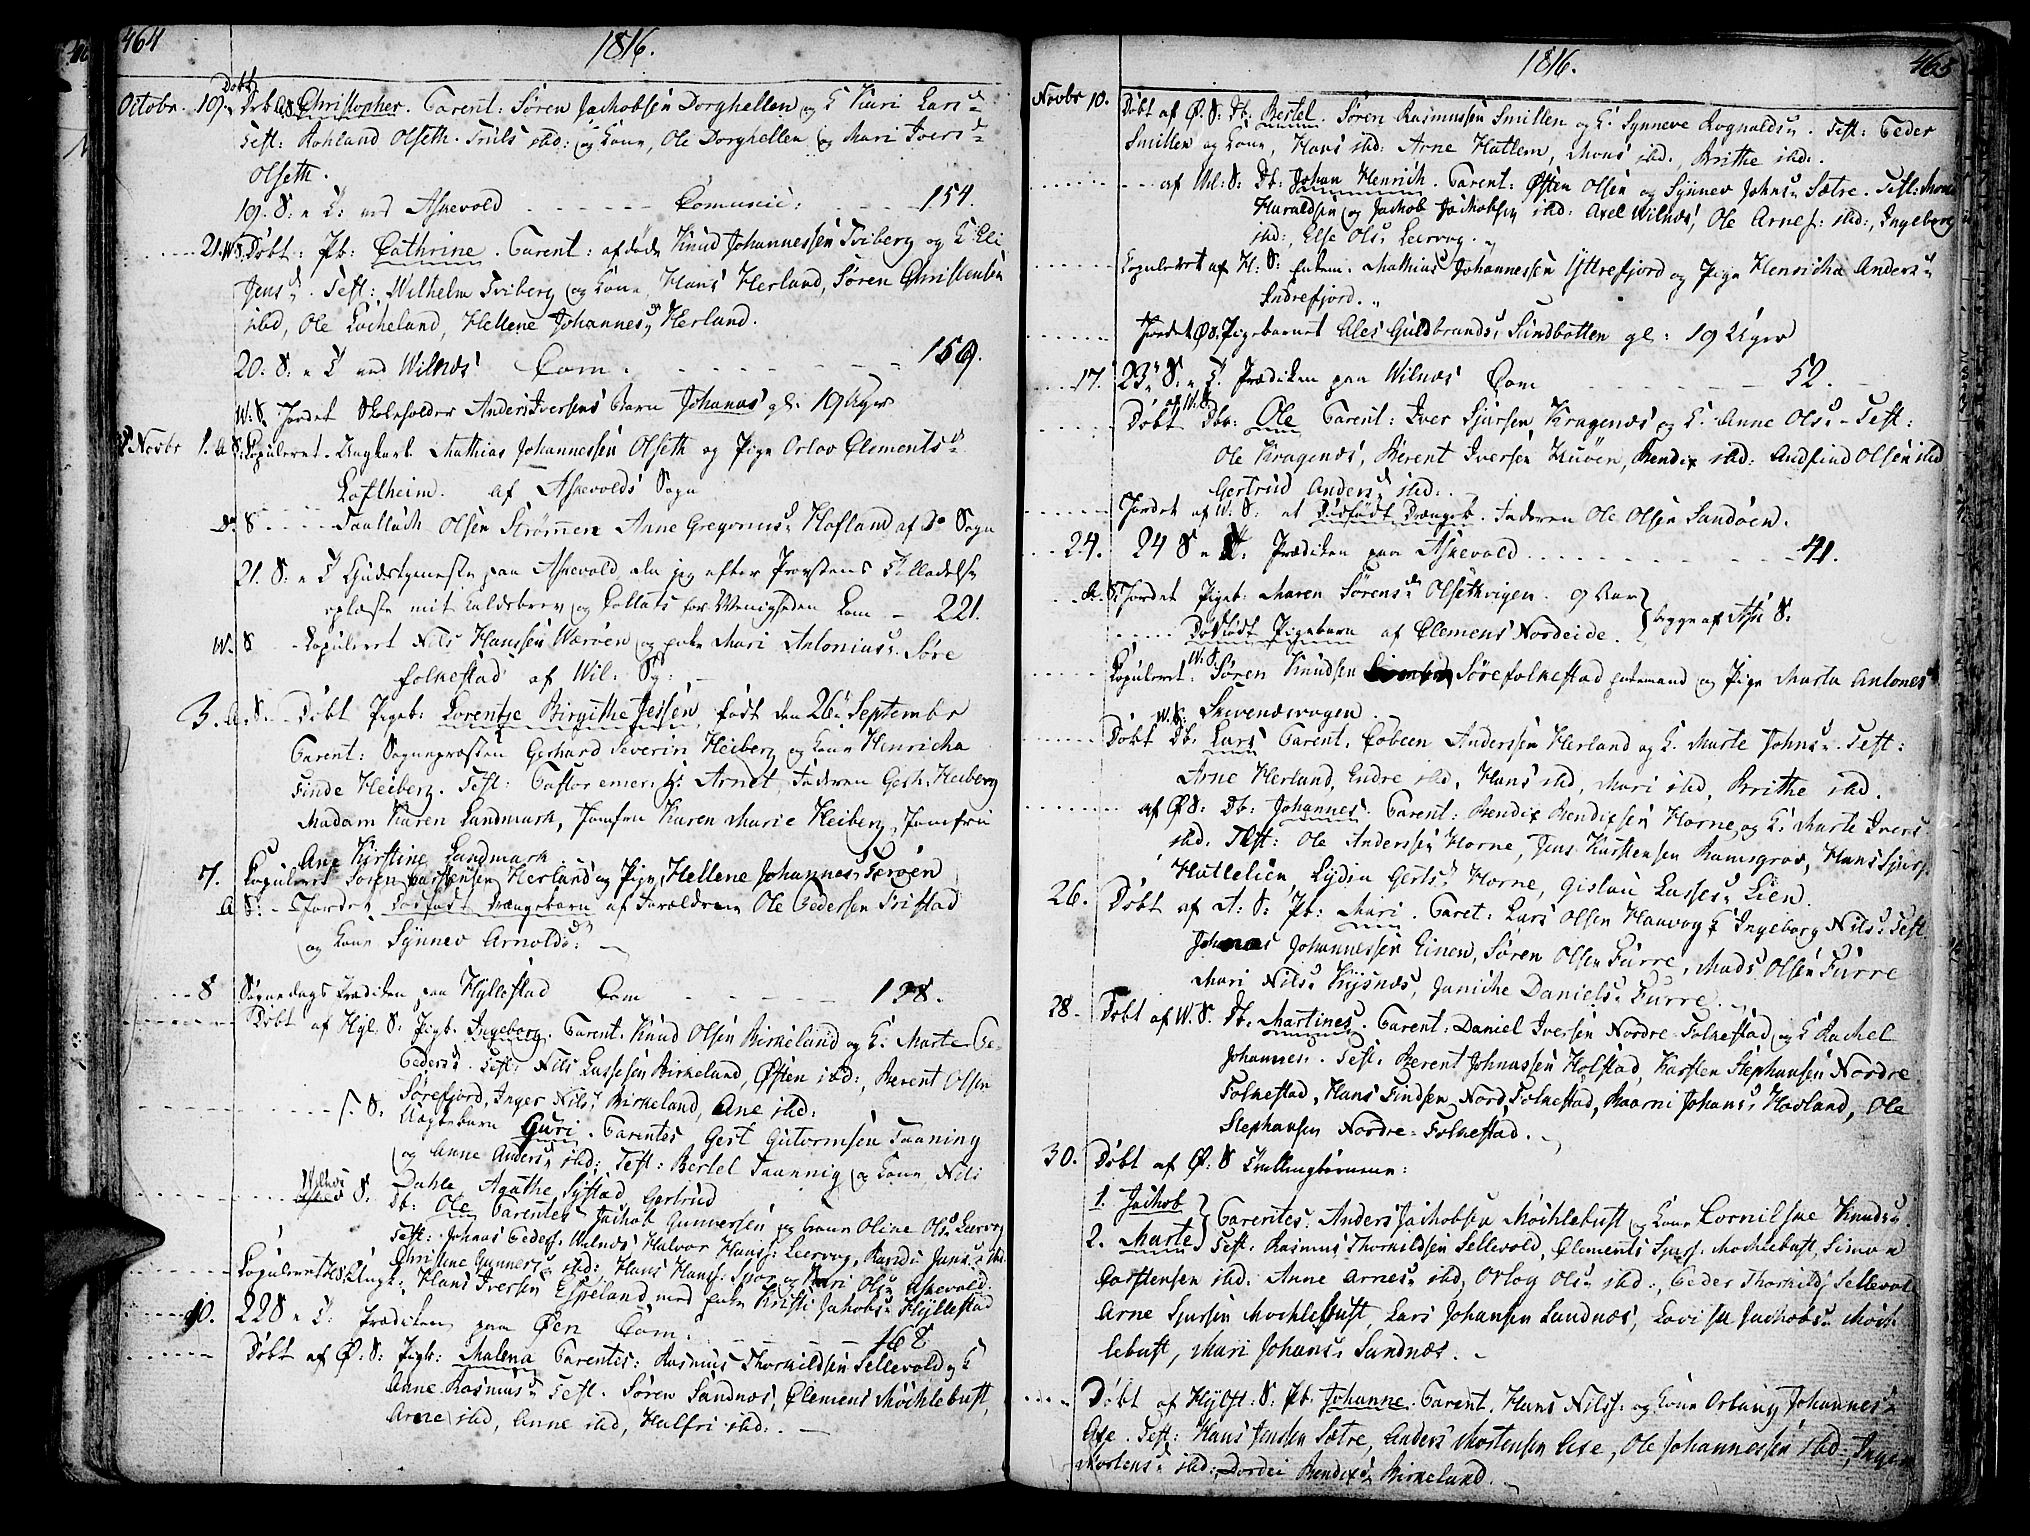 464
1816.
Octobr. 19. Døbt Db. Christopher. Parent: Søren Jachobsen Dorghellen og K Kari Lars
Test: Rohland Olseth. Truls ibd: og Kone, Ole Dorghellen og Mari Ivers
Olseth.
19. S: e T: ved Askevold Comunic: 154.
21. W.S. Døbt: Pb: Cathrine. Parent: afdøde Knud Johannessen Tviberg og K Eli
Jens. Test: Wilhelm Tviberg og Kone, Hans Herland, Søren Christensen
ibid, Ole Locheland, Hellene Johannes Herland.
20. S: e T ved Wilnæs Com. 159.
W: S. Jordet Skoleholder Anders Iversens Barn Johanas gl: 19 Uger
Novbr 1. A S: Copuleret Ungkarl Mathias Johannessen Olseth og Pige Orlov Clements
Loftheim. af Askevolds Sogn
Do S Olsen Strømen Anne Gregorius Hofland af Do Sogn
21. S: e T Gudstjeneste paa Askevold, da jeg efter Provstens Tilladelse
oplæste mit Kaldsbrev og Collats for Menigheden Com 221.
W. S Copuleret Nils Hanssen Værøen og enke Mari Antonius Søre
folkestad af Wil: Sg:
3. A. S. Døbt Pigeb: Lorentze Birgithe Jessen, født den 26 Septembr
Parent: Sognepræsten Gerhard Severin Heiberg og Kone Henricha
Finde Heiberg. Test: Pastor emer: Hr Arnet, Faderen Gerh. Heiberg
Madam Karen Landmark, Jomfru Karen Marie Heiberg, Jomfru
Ane Kirstine Landmark
7. Copuleret Søren Carstensen Herland og Pige Hellene Johannes Færøen
A S: Jordet Dødfødt Drængebarn af Forældrene Ole Pedersen Tristad
og Kone Synnev Arnolds:
8 Søgnedags Prædiken paa Hyllestad Com 138.
Døbt af Hyl. S: Pigb. Ingeborg. Parent. Knud Olsen Birkeland og K. Marte Pe-
Peders. Test: Nils Lassesen Birkeland, Østen ibd:, Berent Olsen
Sørefjord, Inger Nils Birkeland, Ane ibd:
S. Uægtebarn Guri. Parentes Gert Gutormsen Taaning
og Anne Anders ibd: Test: Bertel Taannig og Kone Nils
Dahle Agathe Systad, Gertrud
S. Db: Ole Parentes Jachob Gunnersen og Kone Oline Ols Leervog
Test: Johnas Peders. Wilnæs Halvor Hans: Leervog, Randi Jons ibd
Christine Gunners ibd: Hans Hans: Spor og Mari Ols Askevold
Copuleret H.S. Ungk: Hans Iversen Espeland med enke Kristi Jakobs Hyllestad
10. 22 S e T: Prædiken paa Øen Com: 168
Døbt af Ø: S: Pigb: Malena Parentes: Rasmus Thorkildsen Sellevold og K
Anne Rasmus Test. Søren Sandnæs, Clemens Mochlebust,
Arne ibd, Anne ibd, Halfri ibd:
1816.
465
Novbr 10. Døbt af Ø. S: Db: Bertel. Søren Rasmussen Smillen og K: Synneve Rognalds. Test: Peder
Smillen og Kone, Hans ibd: Arne Hatlem, Mons ibd., Brithe ibd:
af Wil: S: Db: Johan Henrich. Parent: Østen Olsen og Synnev Johns Sætre. Test: Mons
Haraldsen og Jachob Jachobsen ibd: Axel Wilnæs, Ole Arnes: ibd:, Ingeborg
ibd:, Else Ols Leervog.
Copuleret af H: S: Enkem. Mathias Johannessen Yttrefjord og Pige Henricha Anders
Indrefjord.
Jordet ØS. Pigebarnet Ales Guldbrands Sundbotten gl: 19 Uger
17. 23 S. e T. Prædiken paa Wilnæs Com 52.
Døbt af W.S. Db: Ole Parent: Iver Sjursen Kragenæs og K. Anne Ols. Test:
Ole Kragenæs, Berent Iversen Huøen, Bendix ibd: Andfind Olsen ibd
Gertrud Anders ibd:
Jordet af W. S: et Dødfødt Drængeb. Faderen Ole Olsen Sandøen.
24. 24 S e T. Prædiken paa Askevold 41.
A. S: Jordet Pigeb. Maren Sørens Olsethvigen.
Dødfødt Pigebarn af Clemens Nordeide. begge af Ask S:
Copuleret W.S. Søren Knudsen Sørefolkestad enkemand og Pige Marta Antones
Skivenæsvogen
W.S: Døbt Db. Lars Parent. Cobeen Anderssen Herland og K. Marte Johns. Test:
Arne Herland, Endre ibd, Hans ibd, Mari ibd, Brithe ibd.
af Ø S: Db: Johannes. Parent: Bendix Bendixsen Horne og K: Marte Ivers
ibd. Test: Ole Anderssen Horne, Jens Karstensen Ramsgrov, Hans Sjurs.
Hatlelien Lydia Gerts Horne, Gislau Lasses Lien.
26. Døbt af A: S: Pb: Mari. Paret: Lars Olsen Haavog K Ingeborg Nils Test
Johannessen Einen, Søren Olsen Furre, Mads Olsen Furre
Mari Nils Krysnæs, Janiche Daniels Furre.
28. Døbt af W. S. Db. Martines. Parent: Daniel Iversen Nordre Folkestad og K Rachel
Johannes. Test. Berent Johnassen Holstad, Karsten Stephansen Nordre
Folkestad, Hans Findsen Nord Folkestad, Baarni Johans Hovland, Ole
Stephansen Nordre-Folkestad.
30. Døbt af Ø: S Tvillingbørnene:
1. Jachob
2. Marte
Parentes. Anders Jachobsen Mochlebust og Kone Cornilsne Knuds
Test. Rasmus Thorkildsen Sellevold, Clements Sjurs. Mochlebust, Simon
Carstensen ibd: Anne Arnes ibd, Orlog Ols ibd:, Peder Thorkilds Sellevold
Arne Sjursen Mochlebust, Lars Johansen Sandnæs, Lovisa Jachobs Moch
lebust, Mari Johans Sandnæs.
Døbt af Hylst: S: Pb. Johanne. Parent. Hans Nilss: og Kone Orlaug Johannes
Ase. Test: Hans Jenssen Sætre, Anders Mortensen Ase, Ole Johannessen ibd:, Inger
Mortens ibd:, Dordei Bendix Birkeland.